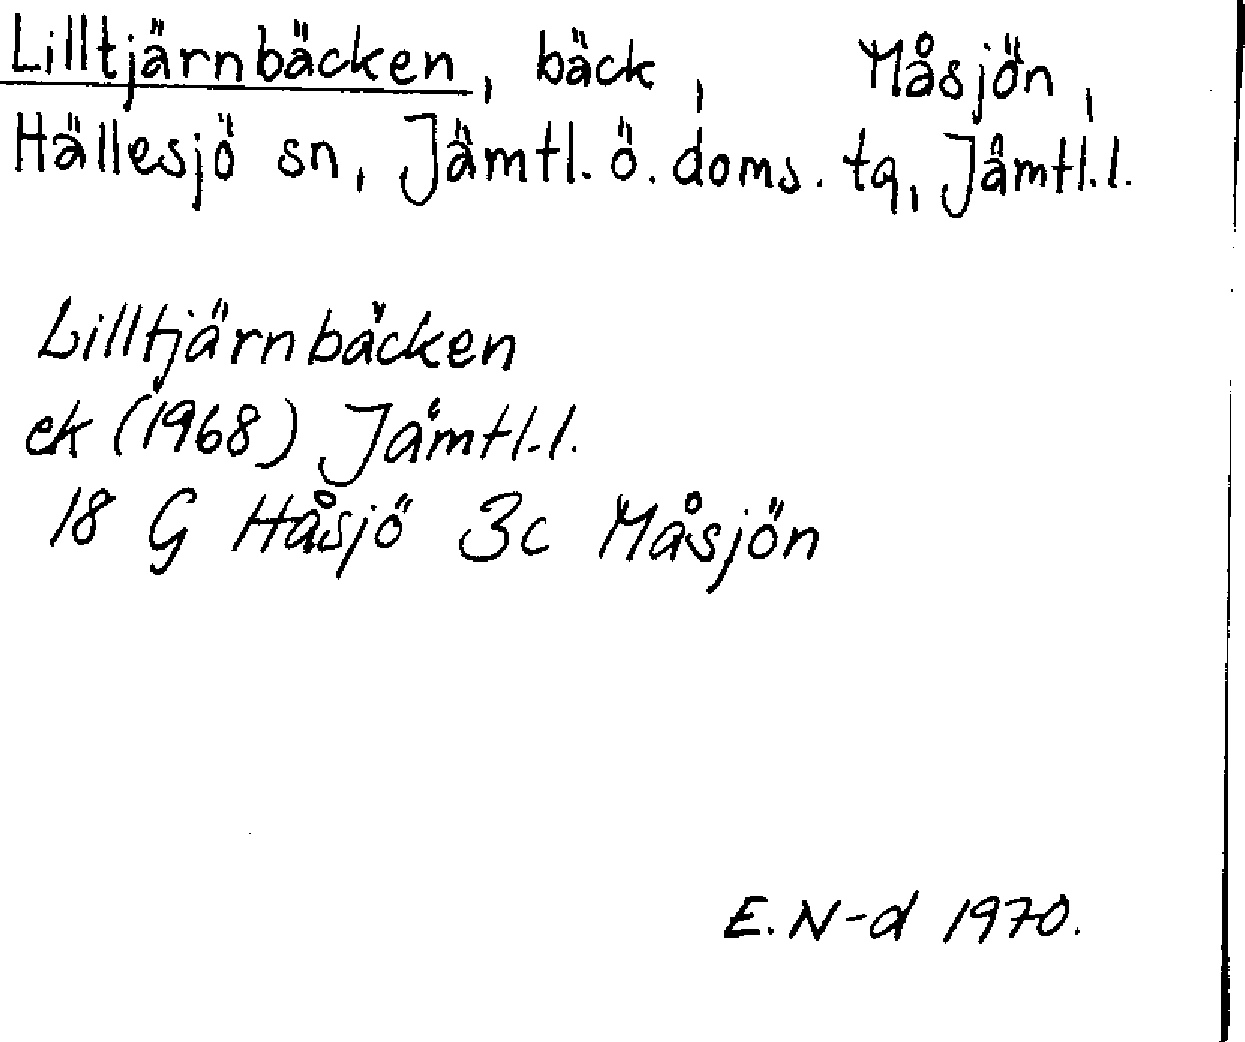 Lilltjärnbäcken, bäck, Måsjön,
Hällesjö sn, Jämtl. ö. doms. tq, Jämtl.l.
Lilltjärnbäcken
ek (1968) Jämtl.l.
18 G Håsjö 3c Måsjön
E. N-d 1970.